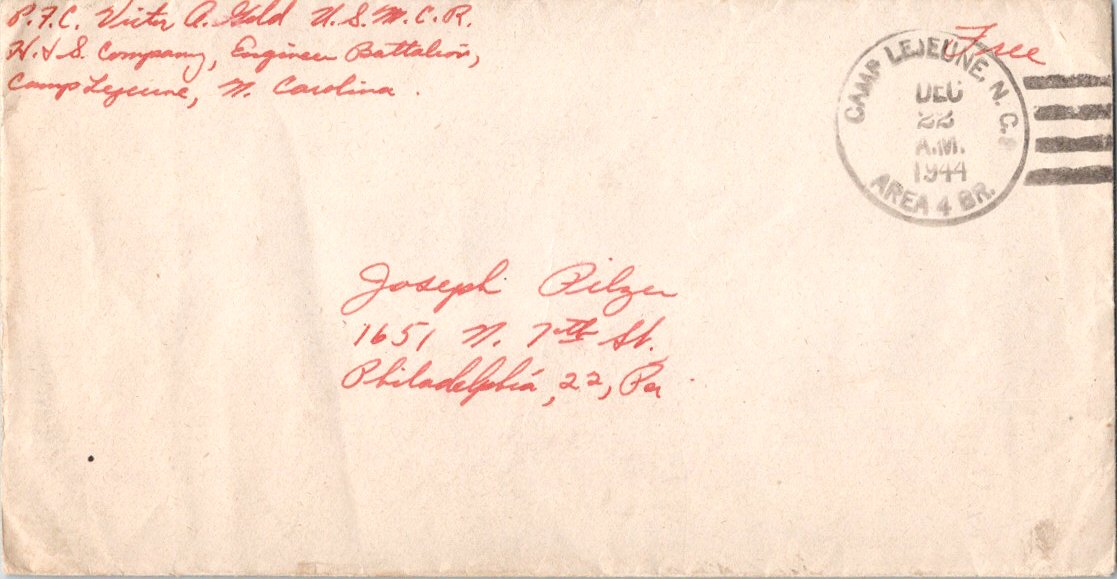 P.F.C. Victor A. Gold U.S.M.C.R.
H. & S. Company, Engineer Battalion,
Camp Lejeune, N. Carolina.
Free
CAMP LEJEUNE, N. C.
DEC
22
A.M.
1944
AREA 4 BR.
Joseph Pilzer
1651 N. 7th St.
Philadelphia, 22, Pa